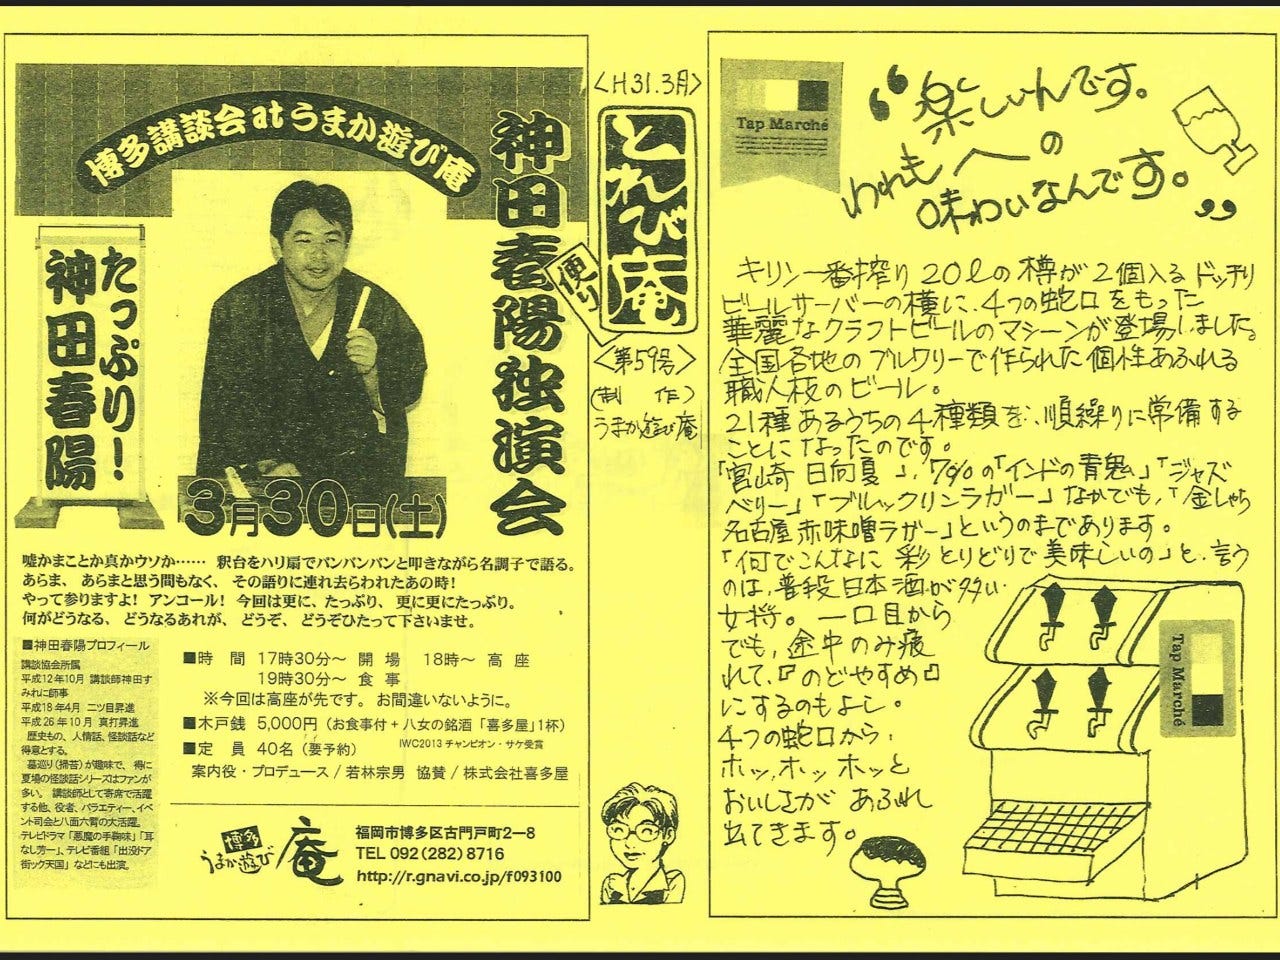 博多講談会atうまか遊び庵
神田春陽独演会
たっぷり!
神田春陽
3月30日(土)
嘘かまことか真かウソか…… 釈台をハリ扇でバンバンバンと叩きながら名調子で語る。
あらま、あらまと思う間もなく、その語りに連れ去らわれたあの時!
やって参りますよ! アンコール! 今回は更に、たっぷり、更に更にたっぷり。
何がどうなる、どうなるあれが、どうぞ、どうぞひたって下さいませ。
■神田春陽プロフィール
講談協会所属
平成12年10月 講談師神田す
みれに師事
平成18年4月 二ツ目昇進
平成26年10月 真打昇進
歴史もの、人情話、怪談話など
得意とする。
墓巡り(掃苔)が趣味で、得に
夏場の怪談話シリーズはファンが
多い。講談師として寄席で活躍
する他、役者、バラエティー、イベ
ント司会と八面六臂の大活躍。
テレビドラマ「悪魔の手鞠唄」「耳
なし芳一」、テレビ番組「出没ドア
街ック天国」などにも出演。
■時 間 17時30分~ 開 場 18時~ 高 座
19時30分~ 食 事
※今回は高座が先です。お間違いないように。
■木戸銭 5,000円(お食事付+八女の銘酒「喜多屋」1杯)
IWC2013 チャンピオン・サケ受賞
■定 員 40名(要予約)
案内役・プロデュース/若林宗男 協賛/株式会社喜多屋
博多
うまか遊び
庵
福岡市博多区古門戸町2ー8
TEL 092(282)8716
http://r.gnavi.co.jp/f093100
<H31.3月>
とれび庵
便り
<第59号>
(制 作)
うまか遊び庵
Tap Marché
“楽しいんです。
われもへの
味わいなんです。”
キリン一番搾り20ℓの樽が2個入るドッチリ
ビールサーバーの横に、4つの蛇口をもった
華麗なクラフトビールのマシーンが登場しました。
全国各地のブルワリーで作られた個性あふれる
職人技のビール。
21種あるうちの4種類を、順繰りに常備する
ことになったのです。
「宮崎 日向夏」、7%の「インドの青鬼」「ジャズ
ベリー」「ブルックリンラガー」なかでも、「金しゃち
名古屋赤味噌ラガー」というのまであります。
「何でこんなに彩とりどりで美味しいの」と、言う
のは、普段日本酒が多い
女将。一口目から
でも、途中のみ疲
れて、『のどやすめ』
にするのもよし。
4つの蛇口から、
ホッ、ホッ ホッと
おいしさが あふれ
出てきます。
Tap Marché